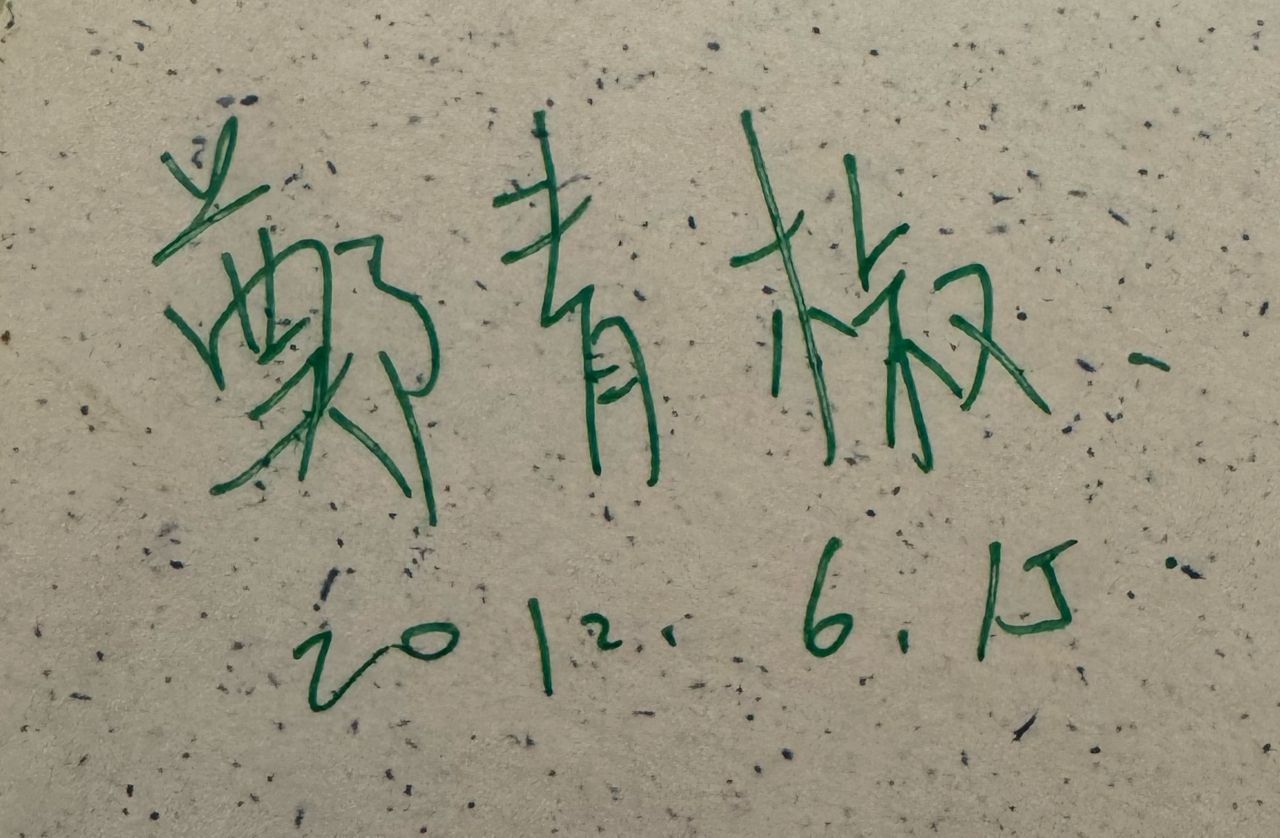 鄭青椒
2012.6.15